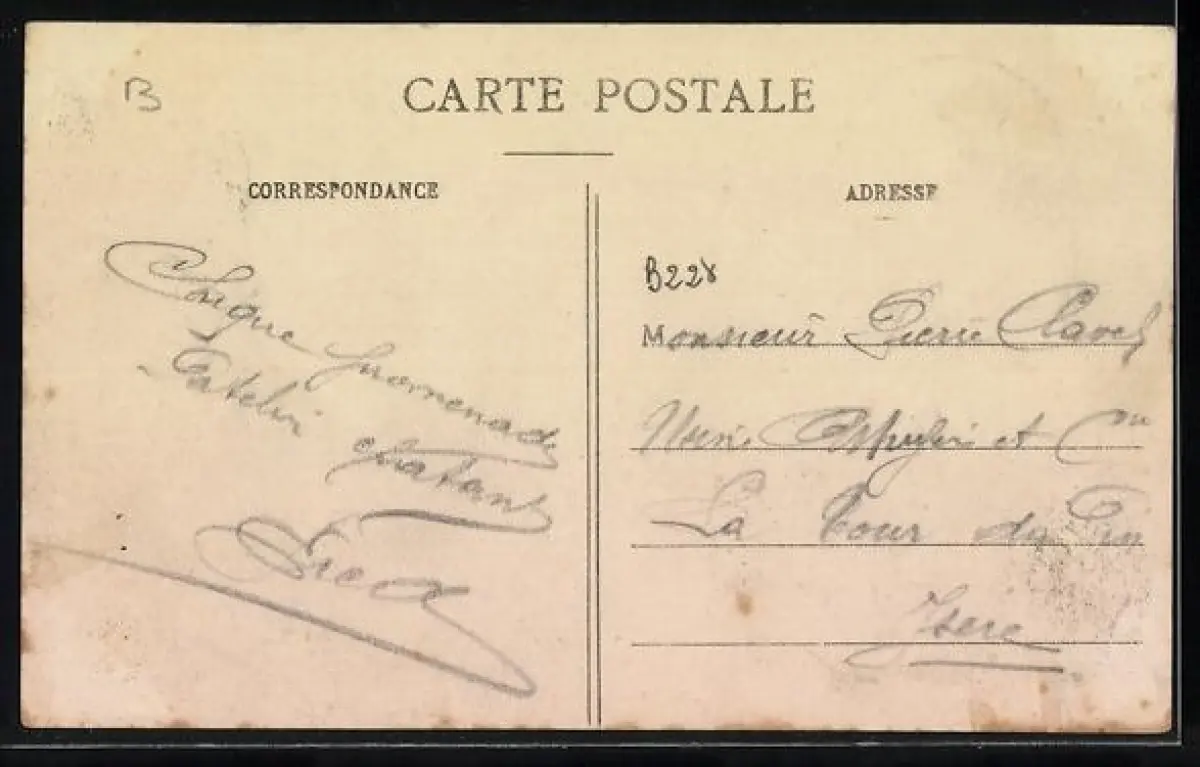 B
CARTE POSTALE
CORRESPONDANCE
Longue promenade
Patelin épatant
ADRESSE
B228
Monsieur Pierre Clavel
Usine et Cie
La Tour du Pin
Isère